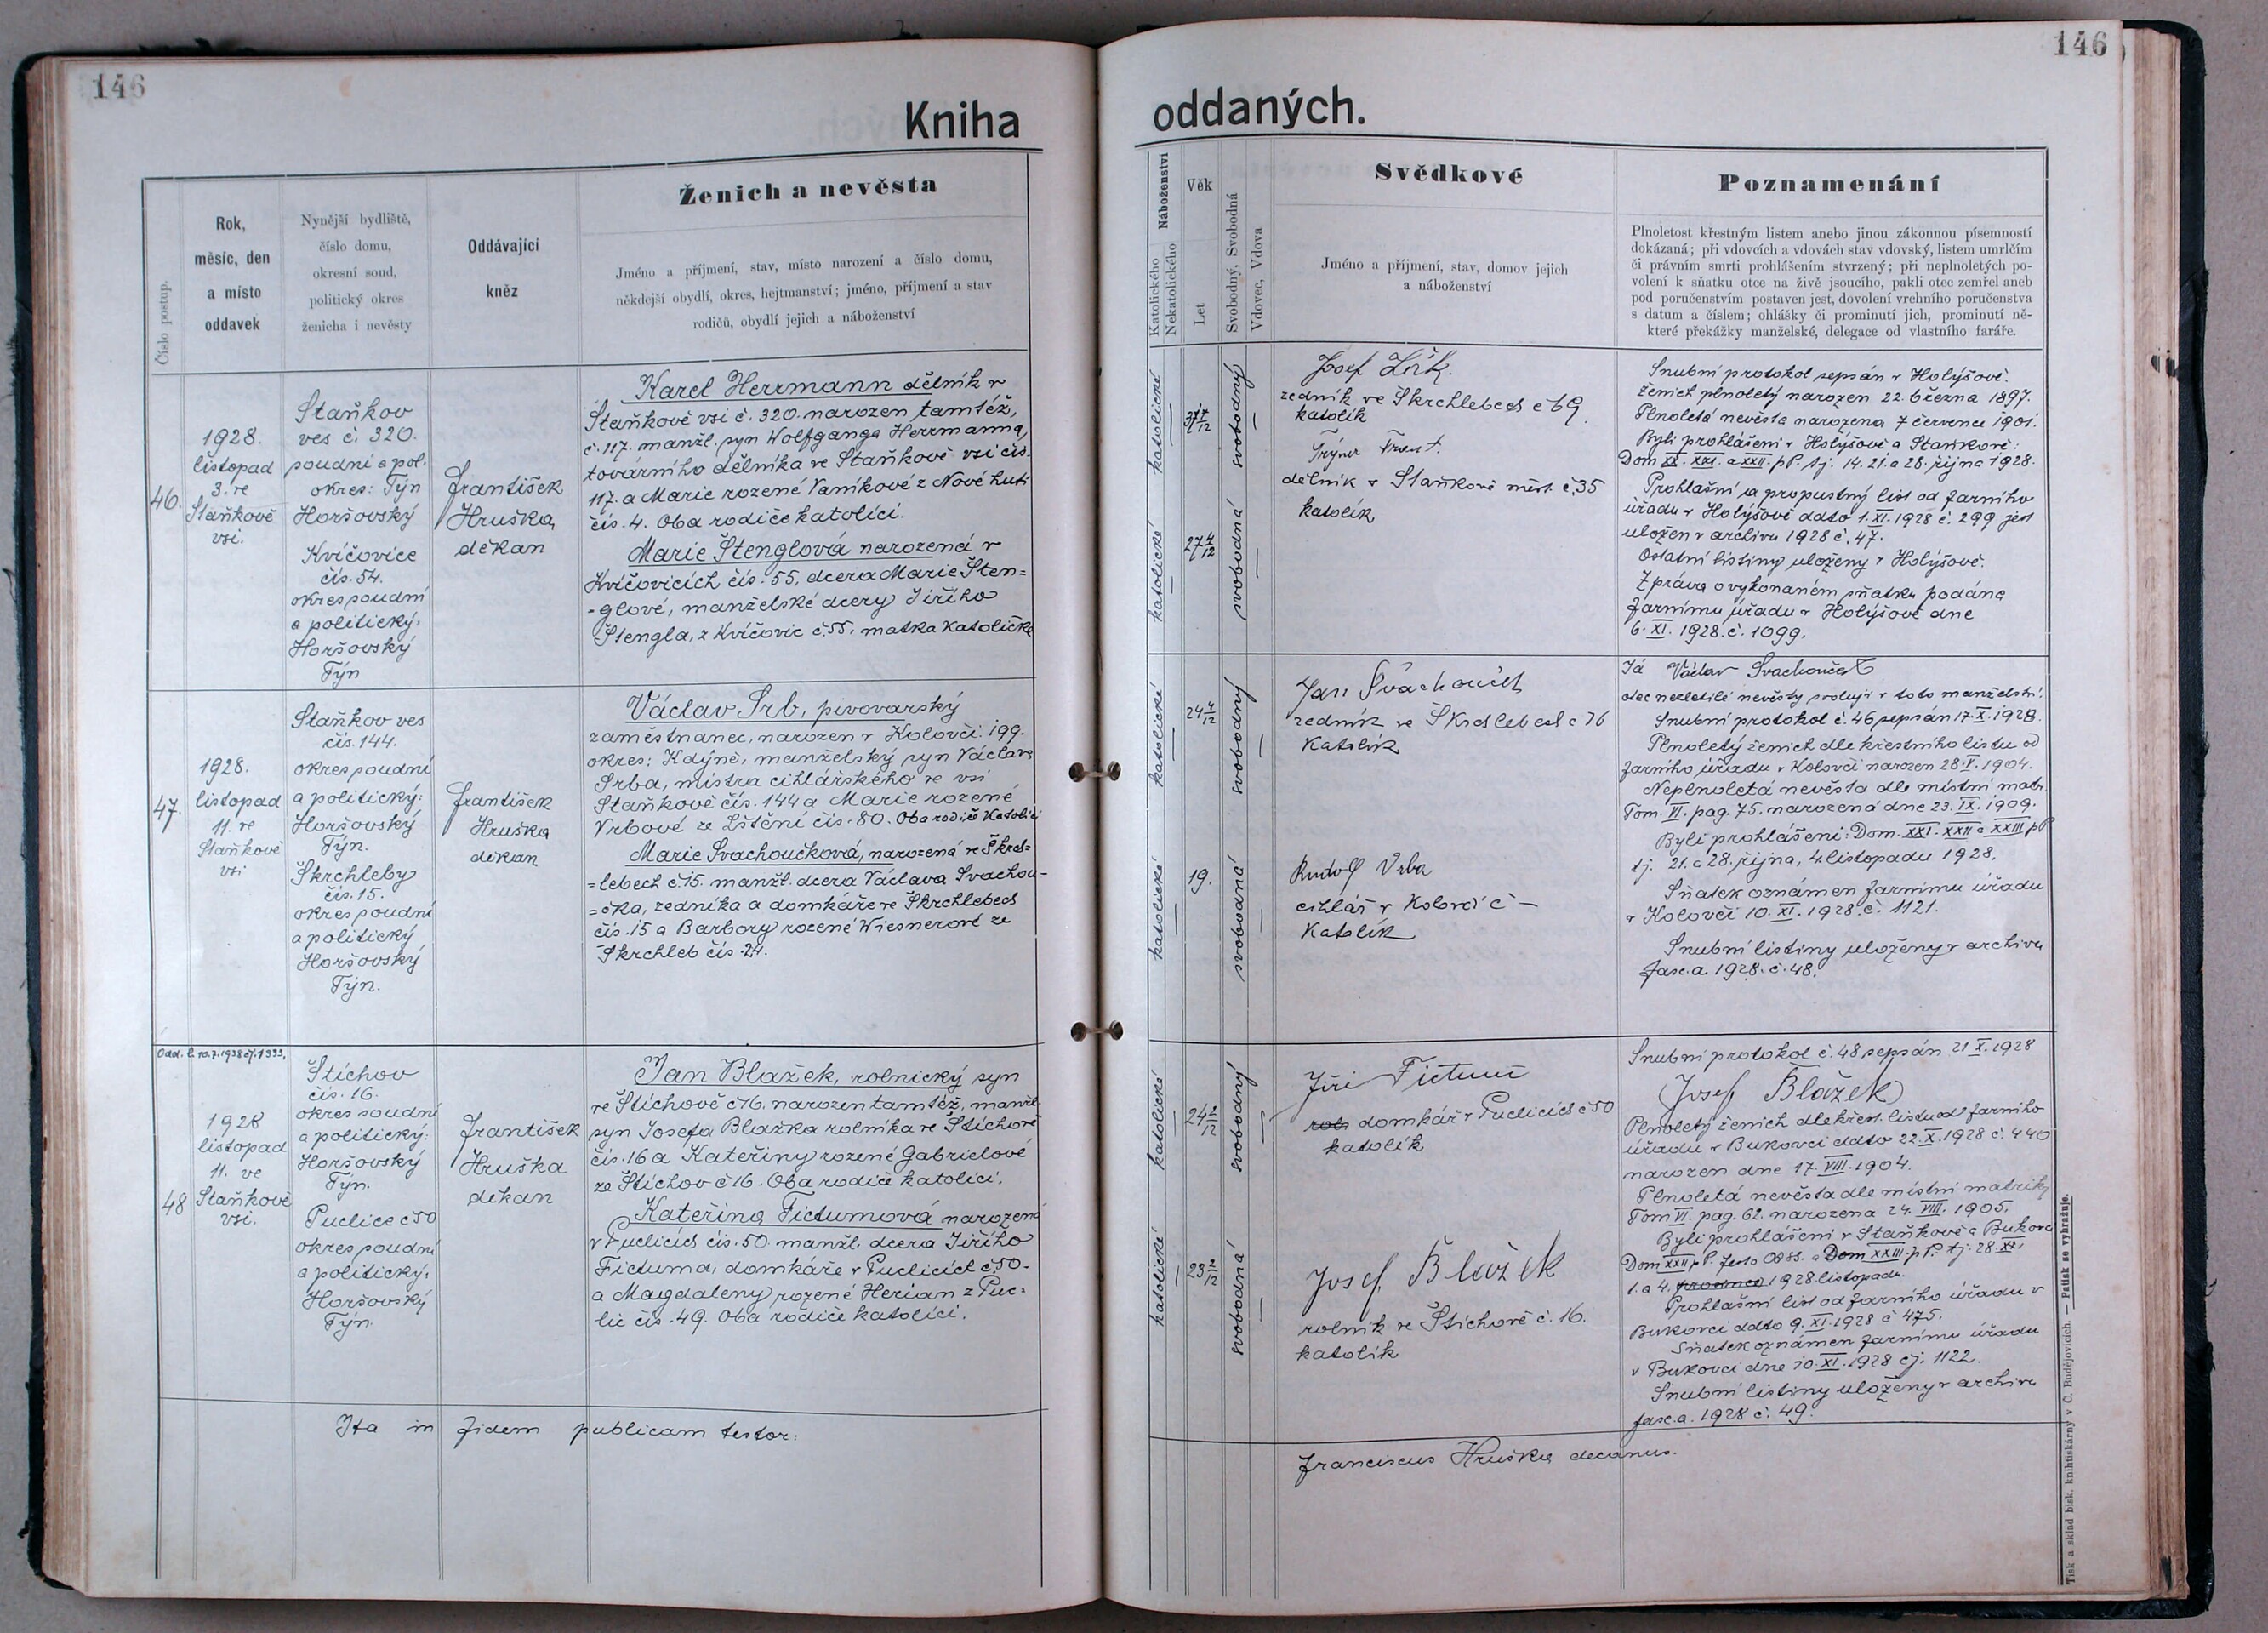 146
Kniha
Číslo postup.
Rok,
měsíc, den
a místo
oddavek
Nynější bydliště,
číslo domu,
okresní soud,
politický okres
ženicha i nevěsty
Oddávající
kněz
Ženich a nevěsta
Jméno a příjmení, stav, místo narození a číslo domu,
někdejší obydlí, okres, hejtmanství; jméno, příjmení a stav
rodičů, obydlí jejich a náboženství
46.
1928.
listopad
3. ve
Staňkově
vsi.
Staňkov
ves č. 320.
soudní a pol.
okres: Týn
Horšovský
Kvíčovice
čís. 54.
okres soudní
a politický:
Horšovský
Týn
František
Hruška,
děkan
Karel Herrmann dělník v
Staňkově vsi č. 320. narozen tamtéž,
č. 117. manžl. syn Wolfganga Herrmanna,
továrního dělníka ve Staňkově vsi čís.
117. a Marie rozené Vaníkové z Nové huti
čís. 4. Oba rodiče katolíci.
Marie Štenglová narozená v
Kvíčovicích čís. 55, dcera Marie Šten=
=glové, manželské dcery Jiřího
Štengla, z Kvíčovic č. 55, matka katolička
47.
1928.
listopad
11. ve
Staňkově
vsi
Staňkov ves
čís. 144.
okres soudní
a politický:
Horšovský
Týn.
Škrchleby
čís. 15.
okres soudní
a politický
Horšovský
Týn.
František
Hruška
děkan
Václav Srb, pivovarský
zaměstnanec, narozen v Kolovči. 199.
okres: Kdýně, manželský syn Václava
Srba, mistra cihlářského ve vsi
Staňkově čís. 144 a Marie rozené
Vrbové ze Lštění čís. 80. Oba rodiče katolíci
Marie Svachoučková, narozená ve Škrch=
=lebech č. 15. manžl. dcera Václava Svachou=
=čka, zedníka a domkáře ve Škrchlebech
čís. 15 a Barbory rozené Wiesnerové ze
Škrchleb čís. 24.
Odd. l. 10.7.1938 čj. 1333.
48
1928
listopad
11. ve
Staňkově
vsi.
Štichov
čís. 16.
okres soudní
a politický:
Horšovský
Týn.
Puclice č 50
okres soudní
a politický:
Horšovský
Týn.
František
Hruška
děkan
Jan Blažek, rolnický syn
ve Štichově č 16. narozen tamtéž, manžl.
syn Josefa Blažka rolníka ve Štichově
čís. 16 a Kateřiny rozené Gabrielové
ze Štichov č 16. Oba rodiče katolíci.
Kateřina Fictumová narozená
v Puclicích čís. 50. manžl. dcera Jiřího
Fictuma, domkáře v Puclicích č. 50.
a Magdaleny rozené Herian z Puc=
lic čís. 49. Oba rodiče katolíci.
Ita in fidem publicam testor:
146
oddaných.
Náboženství
Katolického
Nekatolického
Věk
Let
Svobodný, Svobodná
Vdovec, Vdova
Svědkové
Jméno a příjmení, stav, domov jejich
a náboženství
Poznamenání
Plnoletost křestným listem anebo jinou zákonnou písemností
dokázaná; při vdovcích a vdovách stav vdovský, listem umrlčím
či právním smrti prohlášením stvrzený; při neplnoletých po-
volení k sňatku otce na živě jsoucího, pakli otec zemřel aneb
pod poručenstvím postaven jest, dovolení vrchního poručenstva
s datum a číslem; ohlášky či prominutí jich, prominutí ně-
které překážky manželské, delegace od vlastního faráře.
katolické
svobodný
katolické
27 4/12
svobodná
Josef
zedník ve Škrchlebech č 69
katolík
dělník v Staňkově měst. č. 35
katolík
Snubní protokol sepsán v Holýšově.
Ženich plnoletý narozen 22. března 1897.
Plnoletá nevěsta narozena 7 července 1901.
Byli prohlášeni v Holýšově a Staňkově:
Dom XX. XXI. a XXII. p P. tj. 14. 21. a 28. října 1928.
Prohlašní a propustný list od farního
úřadu v Holýšově ddto 1. XI. 1928 č. 299 jest
uložen v archivu 1928 č. 47.
Ostatní listiny uloženy v Holýšově.
Zpráva o vykonaném sňatku podána
farnímu úřadu v Holýšově dne
6. XI. 1928. č. 1099.
katolické
24 4/12
svobodný
katolické
19.
svobodná
Jan Svachouček
zedník ve Škrchlebech č 76
katolík
Rudolf Vrba
cihlář v Kolovči č —
katolík
Já Václav Svachouček
otec nezletilé nevěsty svoluji v toto manželství.
Snubní protokol č. 46 sepsán 17. X. 1928.
Plnoletý ženich dle křestního listu od
farního úřadu v Kolovči narozen 28. V. 1904.
Neplnoletá nevěsta dle místní matr.
Tom. VI. pag. 75. narozená dne 23. IX. 1909.
Byli prohlášeni: Dom. XXI. XXII a XXIII p P
tj. 21. a 28. října, 4 listopadu 1928.
Sňatek oznámen farnímu úřadu
v Kolovči 10. XI. 1928. č. 1121.
Snubní listiny uloženy v archivu
fasc. a. 1928. č. 48.
katolické
24 2/12
svobodný
katolické
23 2/12
svobodná
Jiří Fictum
domkář v Puclicích č 50
katolík
Josef Blažek
rolník ve Štichově č. 16.
katolík
Snubní protokol č. 48 sepsán 21 X. 1928
Josef Blažek
Plnoletý ženich dle křest. listu od farního
úřadu v Bukovci ddto 22. X. 1928 č. 440
narozen dne 17. VIII. 1904.
Plnoletá nevěsta dle místní matriky
Tom VI. pag. 62. narozena 24. VIII. 1905.
Byli prohlášeni v Staňkově a Bukovci
Dom XXII p P. festo OO SS. a Dom XXIII. p P. tj. 28. XI.
1. a 4. 1928 listopadu.
Prohlašní list od farního úřadu v
Bukovci ddto 9. XI. 1928 č 475.
Sňatek oznámen farnímu úřadu
v Bukovci dne 10. XI. 1928 čj. 1122.
Snubní listiny uloženy v archivu
fasc. a. 1928 č. 49.
Franciscus Hruška decanus.
Tisk a sklad bisk. knihtiskárny v Č. Budějovicích. — Patisk se vyhražuje.